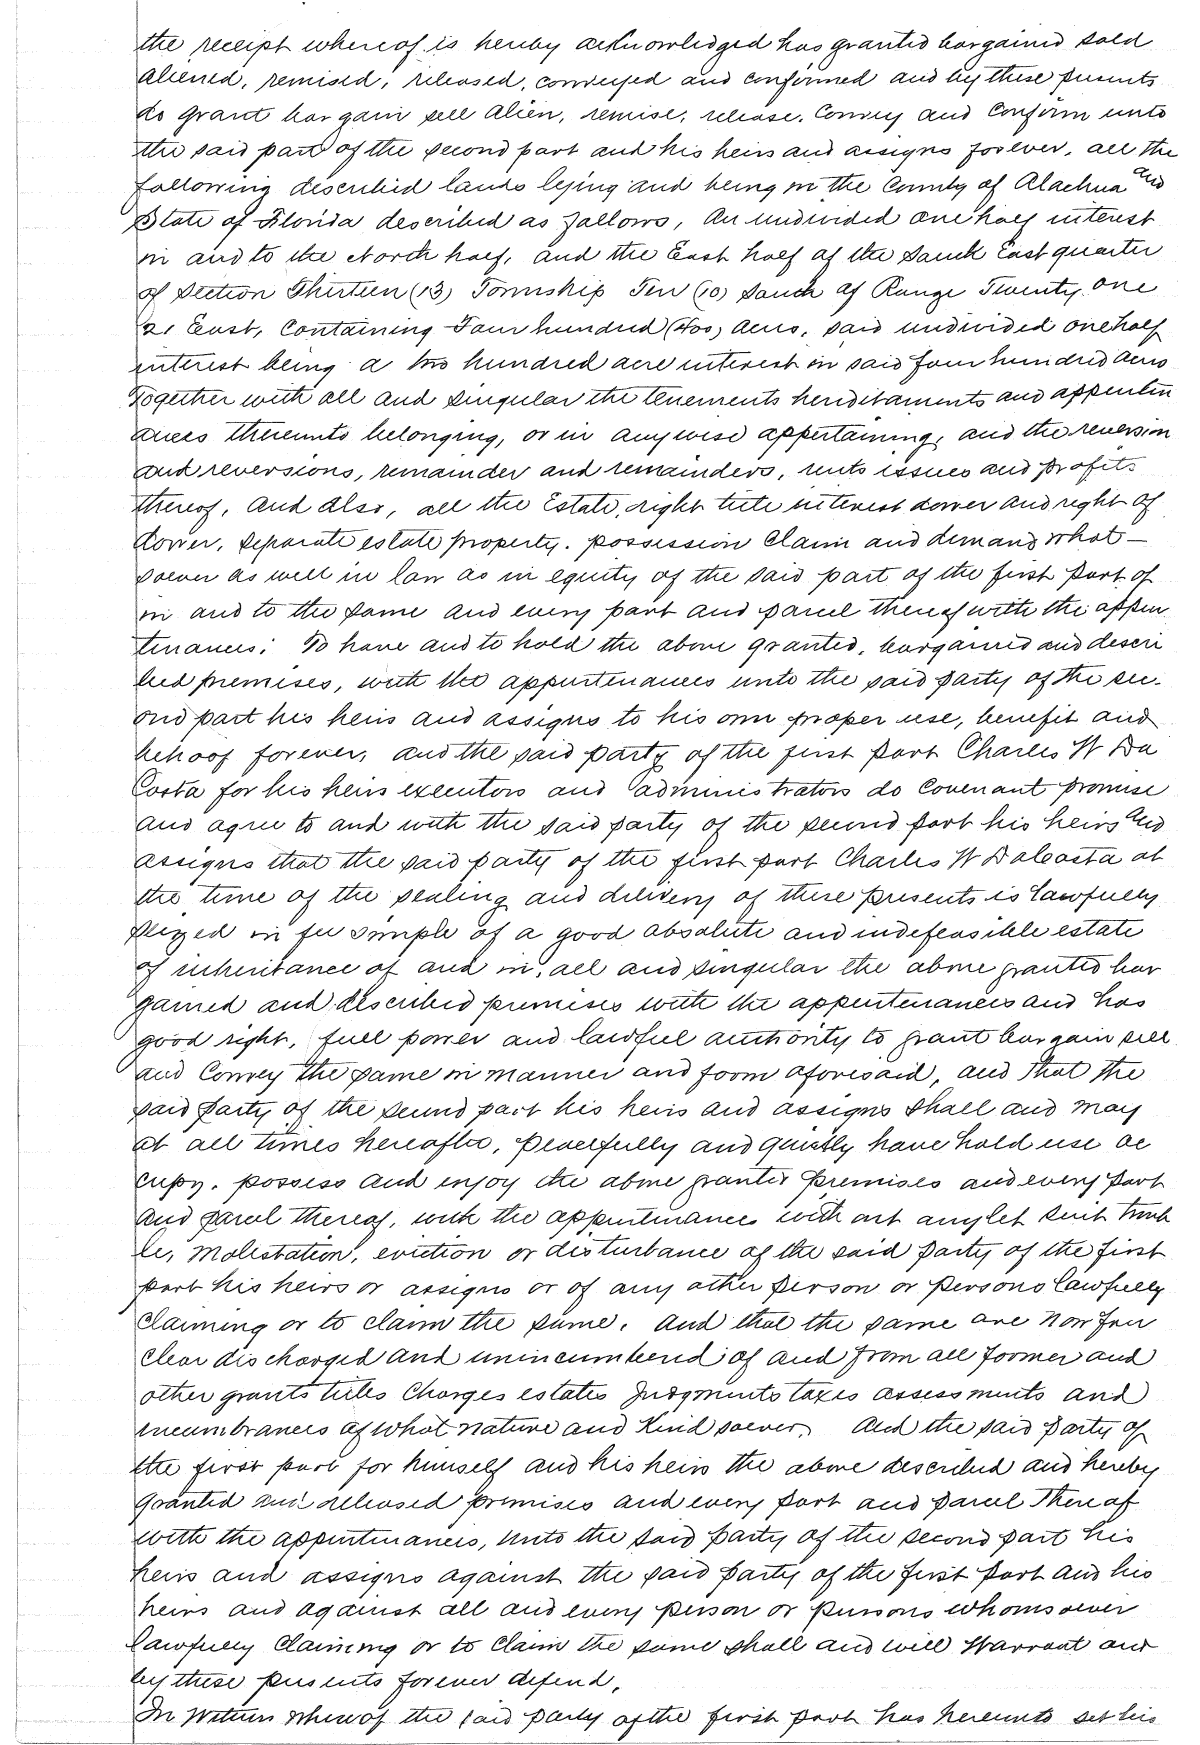 the receipt whereof is hereby acknowledged has granted bargained sold
aliened, remised, released, conveyed and confirmed and by these presents
do grant bargain sell alien, remise, release, Convey and Confirm unto
the said part of the second part and his heirs and assigns forever, all the
following described lands lying and being in the County of Alachua and
State of Florida described as follows, An undivided one half interest
in and to the North half, and the East half of the South East quarter
of Section Thirteen (13) Township Ten (10) South of Range Twenty one
21 East, Containing Four hundred (400) Acres, said undivided one half
interest being a two hundred acre interest in said four hundred acres
Together with all and singular the tenements hereditaments and appurten
ances thereunto belonging, or in anywise appertaining, and the reversion
and reversions, remainder and remainders, rents issues and profits
thereof, and also, all the Estate, right title interest dower and right of
dower, separate estate property, possession Claim and demand what—
soever as well in law as in equity of the said part of the first part of
in and to the same and every part and parcel thereof with the appur
tenances: To have and to hold the above granted, bargained and descri
bed premises, with the appurtenances unto the said party of the sec-
ond part his heirs and assigns to his own proper use, benefit and
behoof forever, and the said party of the first part Charles W Da
Costa for his heirs executors and administrators do Covenant promise
and agree to and with the said party of the second part his heirs and
assigns that the said party of the first part Charles W DaCosta at
the time of the sealing and delivery of these presents is lawfully
seized in fee simple of a good absolute and indefeasible estate
of inheritance of and in, all and singular the above granted bar
gained and described premises with the appurtenances and has
good right, full power and lawful authority to grant bargain sell
and Convey the same in manner and form aforesaid, and that the
said party of the second part his heirs and assigns shall and may
at all times hereafter, peacefully and quietly have hold use oc
cupy, possess and enjoy the above granted premises and every part
and parcel thereof, with the appurtenances with out any let suit troub
le, Molestation, eviction or disturbance of the said party of the first
part his heirs or assigns or of any other person or persons lawfully
claiming or to claim the same, and that the same are now free
clear discharged and unincumbered of and from all former and
other grants titles Charges estates Judgments taxes assessments and
incumbrances of what nature and Kind soever, And the said party of
the first part for himself and his heirs the above described and hereby
granted and released premises and every part and parcel Thereof
with the appurtenances, unto the said party of the second part his
heirs and assigns against the said party of the first part and his
heirs and against all and every person or persons whomsoever
lawfully Claiming or to Claim the same shall and will Warrant and
by these presents forever defend.
In Witness whereof the said party of the first part has hereunto set his